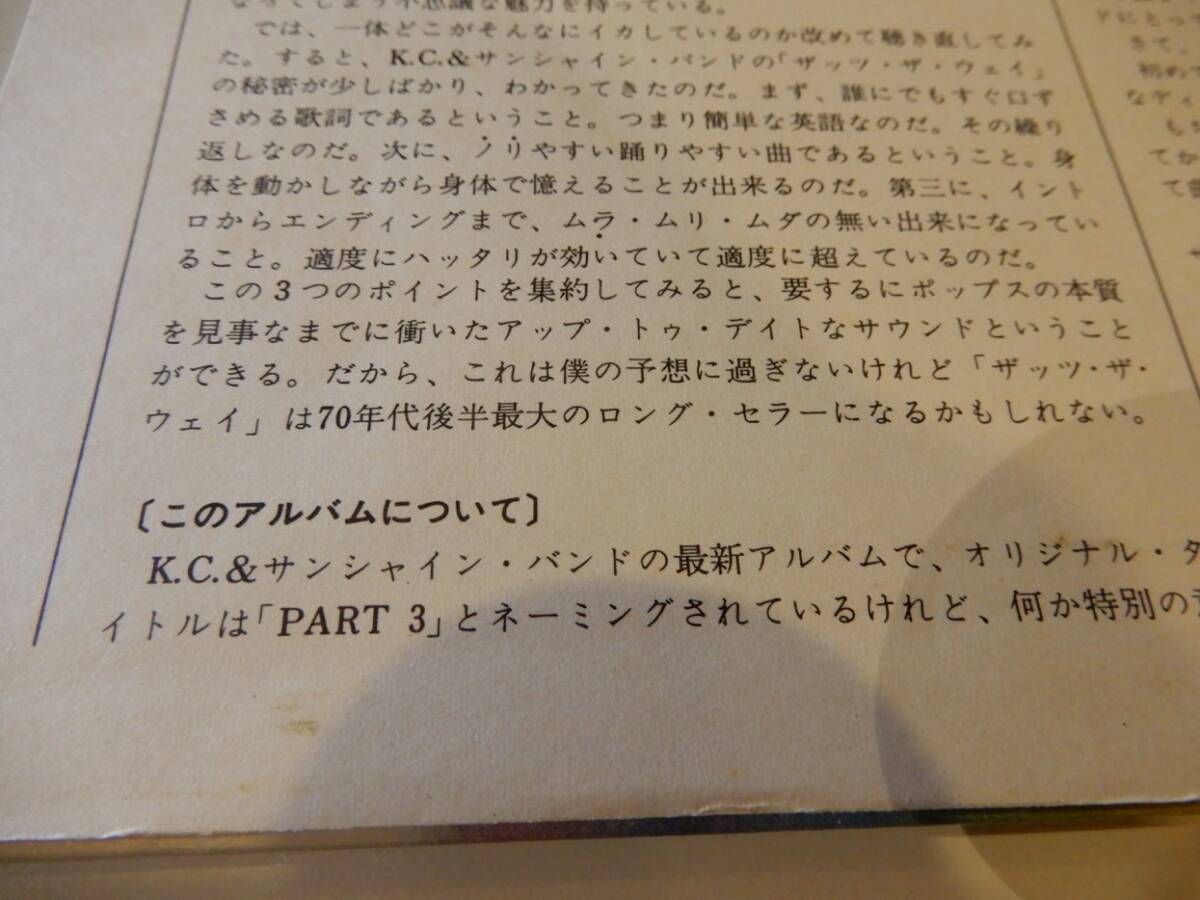 なってしまう不思議な魅力を持っている。
では、一体どこがそんなにイカしているのか改めて聴き直してみ
た。すると、K.C.&サンシャイン・バンドの「ザッツ・ザ・ウェイ」
の秘密が少しばかり、わかってきたのだ。まず、誰にでもすぐ口ず
さめる歌詞であるということ。つまり簡単な英語なのだ。その繰り
返しなのだ。次に、ノリやすい踊りやすい曲であるということ。身
体を動かしながら身体で憶えることが出来るのだ。第三に、イント
ロからエンディングまで、ムラ・ムリ・ムダの無い出来になってい
ること。適度にハッタリが効いていて適度に超えているのだ。
この3つのポイントを集約してみると、要するにポップスの本質
を見事なまでに衝いたアップ・トゥ・デイトなサウンドということ
ができる。だから、これは僕の予想に過ぎないけれど「ザッツ・ザ・
ウェイ」は70年代後半最大のロング・セラーになるかもしれない。
〔このアルバムについて〕
K.C.&サンシャイン・バンドの最新アルバムで、オリジナル・タ
イトルは「PART 3」とネーミングされているけれど、何か特別の
ドにとって
きて、
初めて
なディ
もち
てか
て
サ